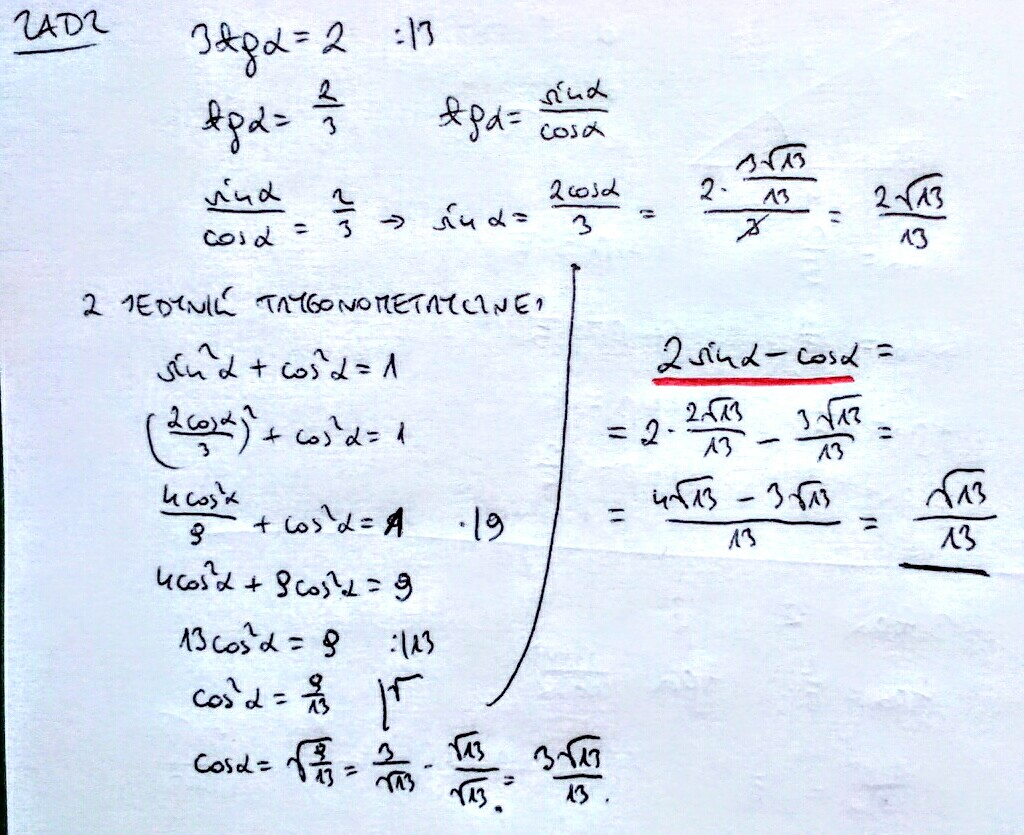 ZAD2
3tgα = 2 :|3
tgα = 2/3 tgα = sinα/cosα
sinα/cosα = 2/3 → sinα = 2cosα/3 = (2 · 3√13/13)/3 = 2√13/13
Z JEDYNKI TRYGONOMETRYCZNEJ
sin²α + cos²α = 1
(2cosα/3)² + cos²α = 1
4cos²α/9 + cos²α = 1 ·|9
4cos²α + 9cos²α = 9
13cos²α = 9 :|13
cos²α = 9/13 |√
cosα = √(9/13) = 3/√13 · √13/√13 = 3√13/13.
2sinα - cosα =
= 2 · 2√13/13 - 3√13/13 =
= (4√13 - 3√13)/13 = √13/13